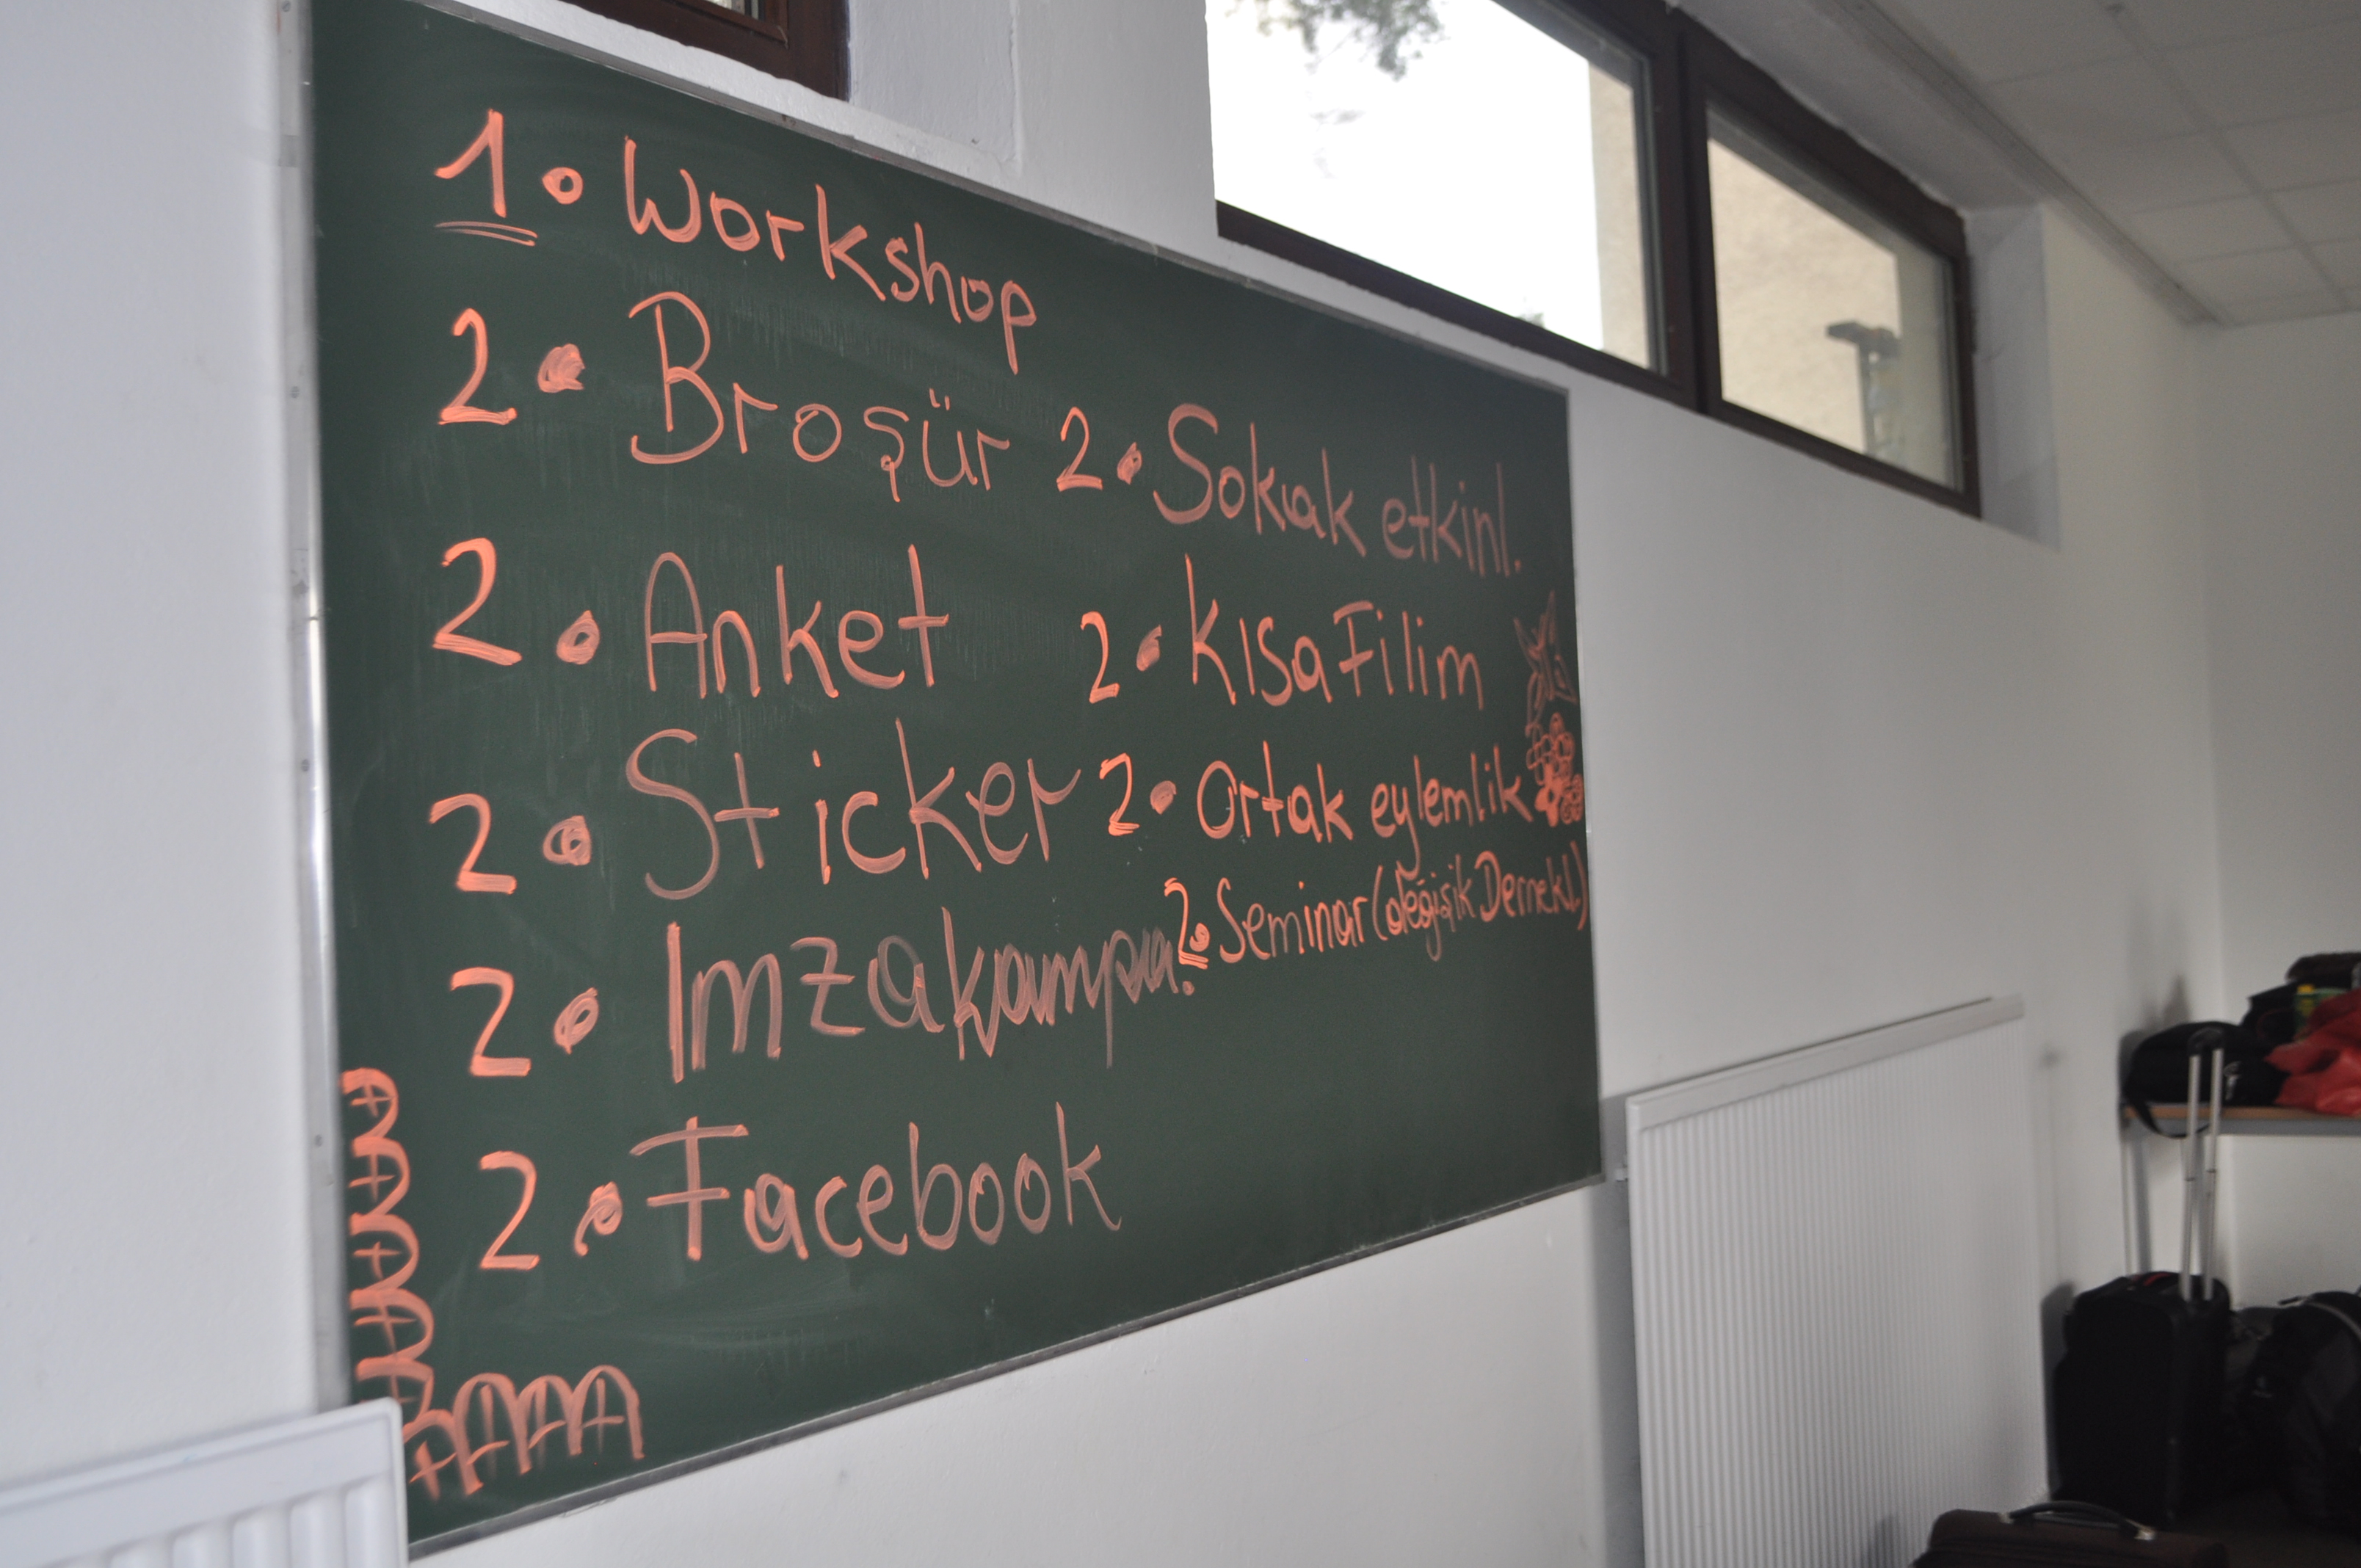 1. Workshop
2. Broşür
2. Anket
2. Sticker
2. Imzakampa.
2. Facebook
2. Sokak etkinl.
2. Kısa Filim
2. Ortak eylemlik
2. Seminar (değişik Dernekl.)